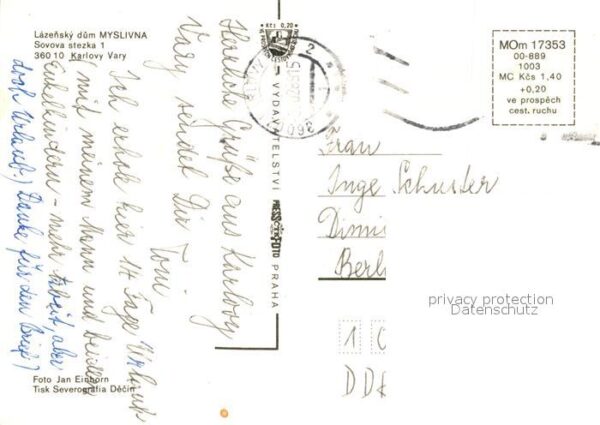 Lázeňský dům MYSLIVNA
Sovova stezka 1
360 10 Karlovy Vary
Herzliche Grüße aus Karlovy
Vary sendet Dir Toni
Ich erhole hier 14 Tage Urlaub
mit meinem Mann und beiden
Enkelkindern - mehr Arbeit, aber
doch Urlaub.) Danke für den Brief!)
Foto Jan Einhorn
Tisk Severografia Děčín
Kčs 0,20
VYDAVATELSTVÍ
PRESSFOTO
PRAHA
MOm 17353
00-889
1003
MC Kčs 1,40
+0,20
ve prospěch
cest. ruchu
Frau
Inge Schuster
Dimi
Berl
privacy protection
Datenschutz
1 0
DDR